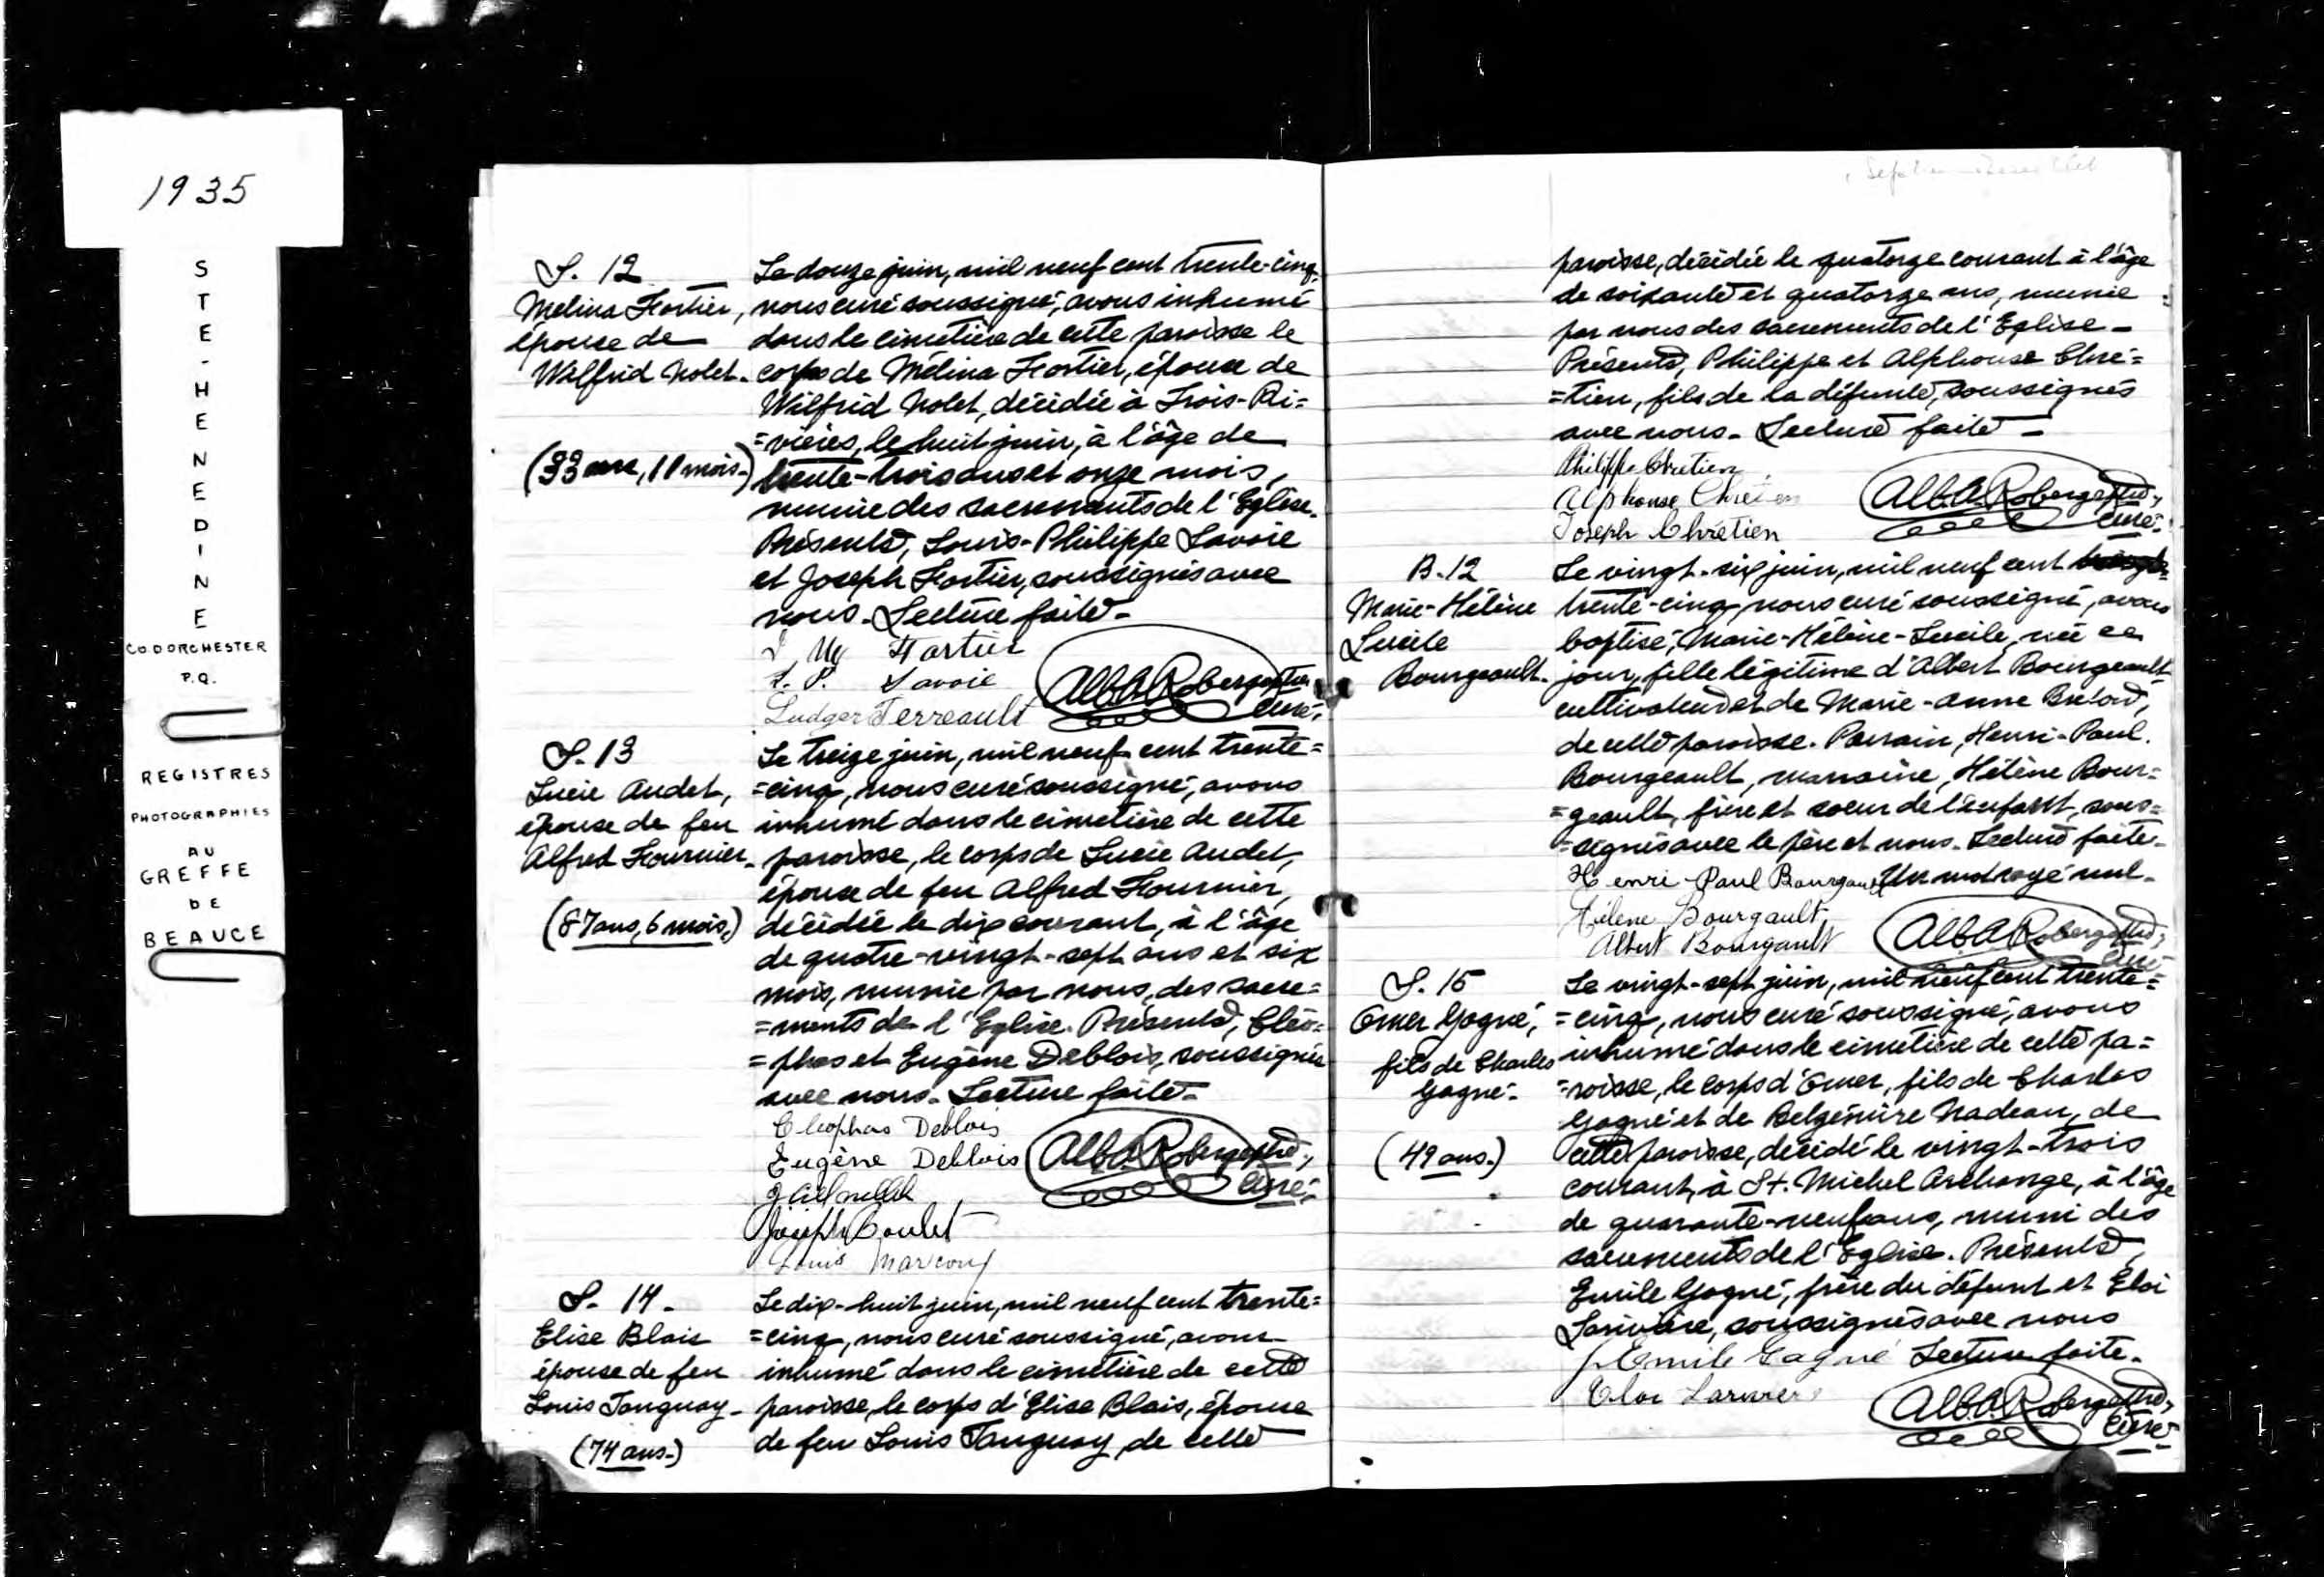 1935
STE-HENEDINE
CO. DORCHESTER
P.Q.
REGISTRES
PHOTOGRAPHIES
AU
GREFFE
DE
BEAUCE
S. 12
Mélina Fortier,
épouse de
Wilfrid Nolet.
(33 ans, 11 mois.)
Le douze juin, mil neuf cent trente-cinq,
nous curé soussigné, avons inhumé
dans le cimetière de cette paroisse le
corps de Mélina Fortier, épouse de
Wilfrid Nolet, décédée à Trois-Ri=
=vières, le huit juin, à l'âge de
trente-trois ans et onze mois,
munie des sacrements de l'Eglise.
Présents, Louis-Philippe Savoie
et Joseph Fortier, soussignés avec
nous. Lecture faite-
Fortier
L. P. Savoie
Ludger Ferreault
Alb. A. Roberge ptre,
curé.
S. 13
Lucie Audet,
épouse de feu
Alfred Fournier.
(87 ans, 6 mois.)
Le treize juin, mil neuf cent trente=
=cinq, nous curé soussigné, avons
inhumé dans le cimetière de cette
paroisse, le corps de Lucie Audet,
épouse de feu Alfred Fournier,
décédée le dix courant, à l'âge
de quatre-vingt-sept ans et six
mois, munie par nous, des sacre=
=ments de l'Eglise. Présents, Cléo=
=phas et Eugène Deblois, soussignés
avec nous. Lecture faite-
Cleophas Deblois
Eugène Deblois
Joseph Boulet
Louis Marcoux
Alb. A. Roberge ptre,
curé.
S. 14.
Elise Blais
épouse de feu
Louis Tanguay.
(74 ans.)
Le dix-huit juin, mil neuf cent trente=
=cinq, nous curé soussigné, avons
inhumé dans le cimetière de cette
paroisse, le corps d'Elise Blais, épouse
de feu Louis Tanguay, de cette
paroisse, décédée le quatorze courant à l'âge
de soixante et quatorze ans, munie
par nous des sacrements de l'Eglise-
Présents, Philippe et Alphonse Chré=
=tien, fils de la défunte, soussignés
avec nous. Lecture faite-
Philippe Chretien
Alphonse Chretien
Joseph Chrétien
Alb. A. Roberge ptre,
curé.
B. 12
Marie-Hélène
Lucile
Bourgeault.
Le vingt-six juin, mil neuf cent
trente-cinq, nous curé soussigné, avons
baptisé, Marie-Hélène-Lucile, née ce
jour, fille légitime d'Albert Bourgeault
cultivateur et de Marie-Anne Breton,
de cette paroisse. Parrain, Henri-Paul
Bourgeault, marraine, Hélène Bour=
=geault, frère et soeur de l'enfant, sous=
=signés avec le père et nous. Lecture faite-
Henri-Paul Bourgault Un mot rayé nul.
Hélene Bourgault,
Albert Bourgault
Alb. A. Roberge ptre,
curé
S. 15
Omer Gagné,
fils de Charles
Gagné.
(49 ans.)
Le vingt-sept juin, mil neuf cent trente=
=cinq, nous curé soussigné, avons
inhumé dans le cimetière de cette pa=
=roisse, le corps d'Omer, fils de Charles
Gagné et de Belzémire Nadeau, de
cette paroisse, décédé le vingt-trois
courant, à St. Michel Archange, à l'âge
de quarante-neuf ans, muni des
sacrements de l'Eglise. Présents,
Emile Gagné, frère du défunt et Eloi
Larivière, soussignés avec nous
Emile Gagné Lecture faite.
Eloi Lariviere
Alb. A. Roberge ptre,
curé